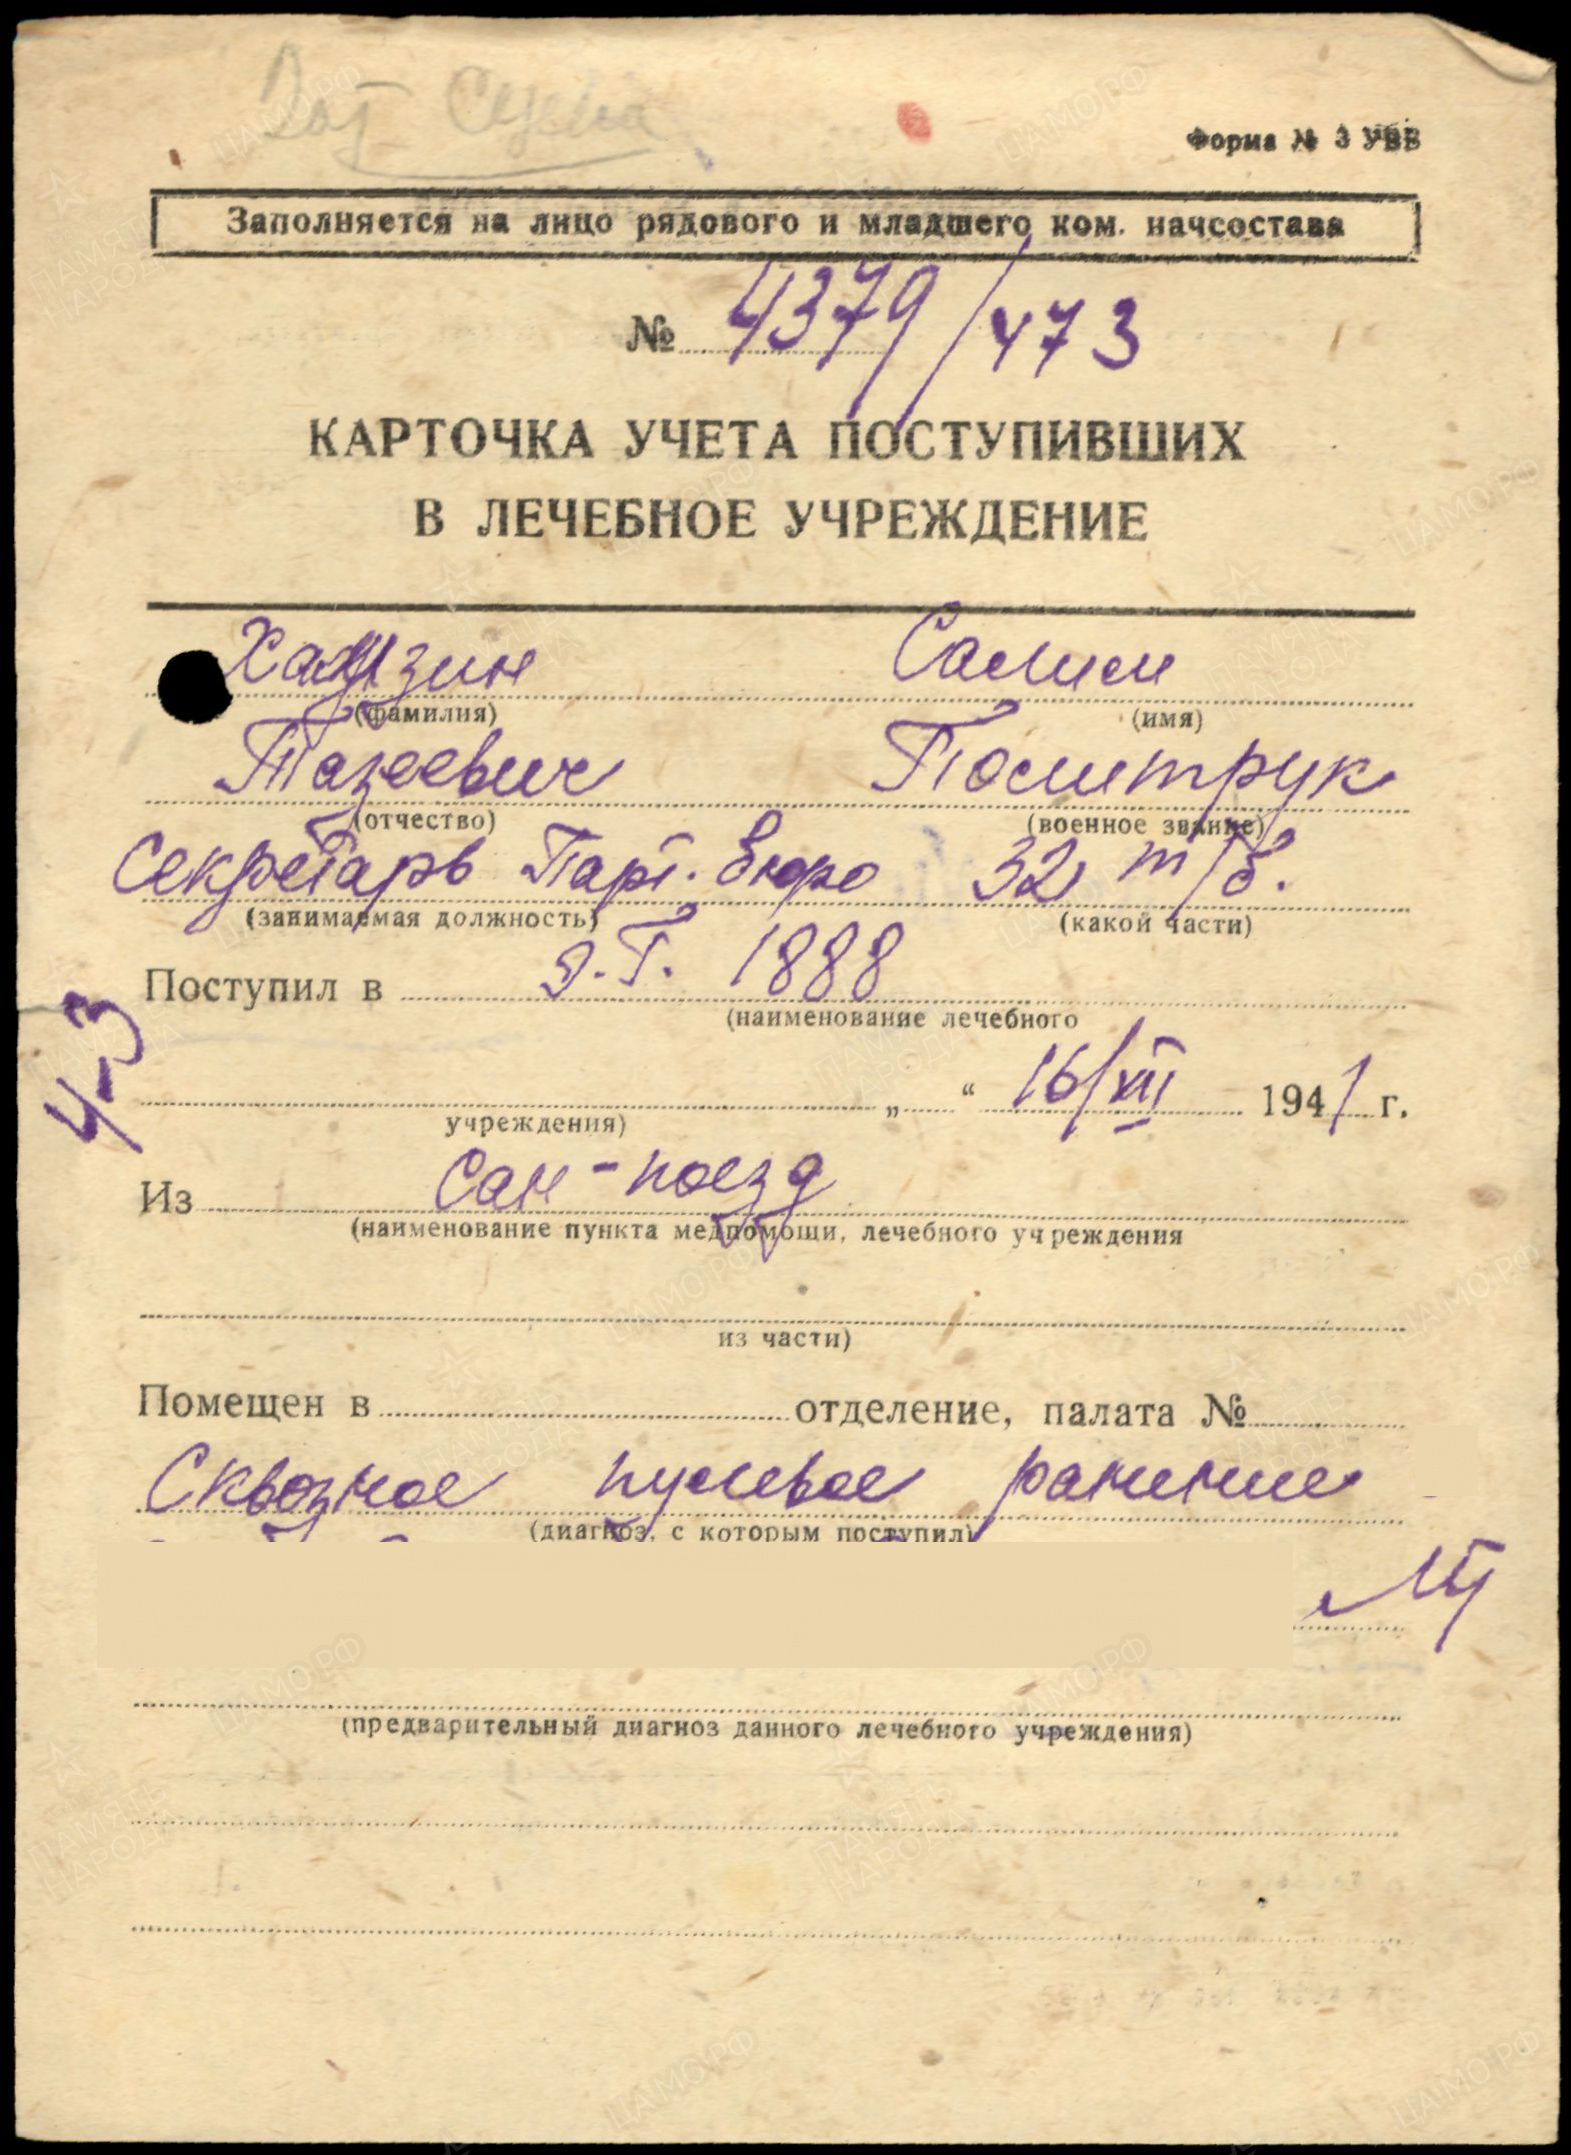 Форма № 3 УВВ
Заполняется на лицо рядового и младшего ком. начсостава
№ 4379/473
КАРТОЧКА УЧЕТА ПОСТУПИВШИХ
В ЛЕЧЕБНОЕ УЧРЕЖДЕНИЕ
Салим
(фамилия) (имя)
Тазеевич Политрук
(отчество) (военное звание)
Секретарь Парт. Бюро 32 т/б.
(занимаемая должность) (какой части)
Поступил в Э.Г. 1888
(наименование лечебного
„ “ 16/XII 1941 г.
учреждения)
Из Сан-поезд
(наименование пункта медпомощи, лечебного учреждения
из части)
Помещен в отделение, палата №
Сквозное пулевое ранение
(диагноз, с которым поступил)
(предварительный диагноз данного лечебного учреждения)
4-3